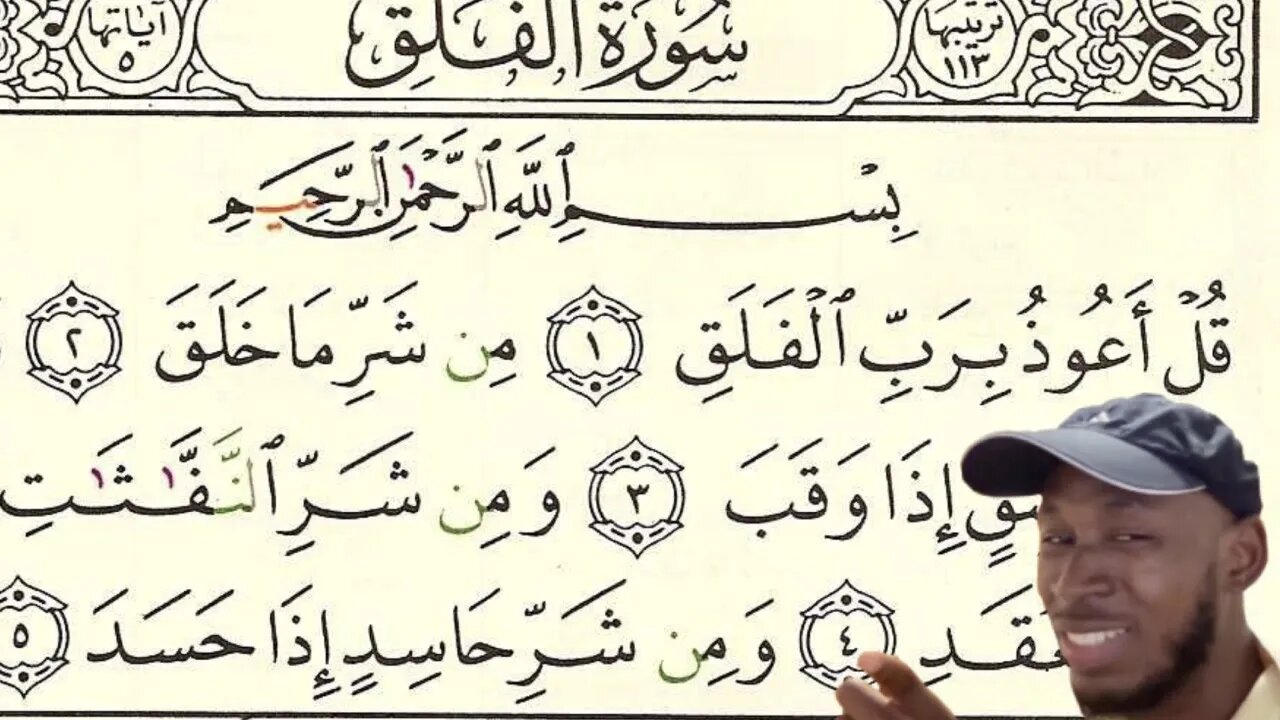 ترتيبها ١١٣ سُورَةُ الْفَلَقِ آيَاتها ٥
بِسْمِ ٱللَّهِ ٱلرَّحْمَٰنِ ٱلرَّحِيمِ
قُلْ أَعُوذُ بِرَبِّ ٱلْفَلَقِ ١ مِن شَرِّ مَا خَلَقَ ٢
إِذَا وَقَبَ ٣ وَمِن شَرِّ ٱلنَّفَّٰثَٰتِ
٤ وَمِن شَرِّ حَاسِدٍ إِذَا حَسَدَ ٥